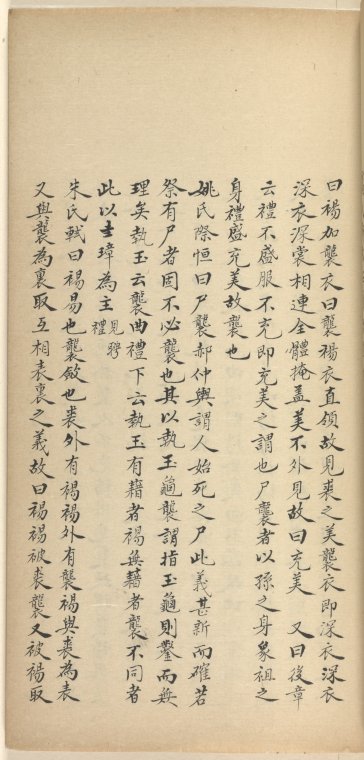 曰裼加襲衣曰襲裼衣直領故見裘之美襲衣即深衣深衣
深衣深裳相連全體掩蓋美不外見故曰充美　又曰後章
云禮不盛服不充即充美之謂也尸襲者以孫之身象祖之
身禮盛充美故襲也
姚氏際恒曰尸襲郝仲輿謂人始死之尸此義甚新而確若
祭有尸者固不必襲也其以執玉龜襲謂指玉龜則鑿而無
理矣執玉云襲曲禮下云執玉有藉者裼無藉者襲不同者
此以圭璋為主見聘禮
朱氏軾曰裼易也襲斂也裘外有裼裼外有襲裼與裘為表
又與襲為裏取互相表裏之義故曰裼裼被裘襲又被裼取